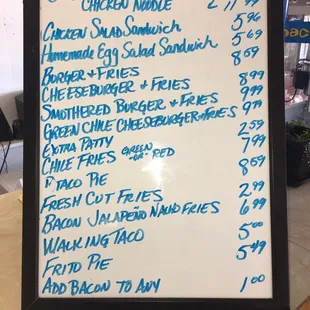 CHICKEN NOODLE 2 99
CHICKEN SALAD SANDWICH 5 96
HOMEMADE EGG SALAD SANDWICH 5 69
BURGER & FRIES 8 69
CHEESEBURGER & FRIES 8 99
SMOTHERED BURGER & FRIES 9 99
GREEN CHILE CHEESEBURGER & FRIES 9 79
EXTRA PATTY 2 59
CHILE FRIES GREEN -OR- RED 7 99
TACO PIE 8 69
FRESH CUT FRIES 2 99
BACON JALAPEÑO NACHO FRIES 6 99
WALKING TACO 5 00
FRITO PIE 5 49
ADD BACON TO ANY 1 00